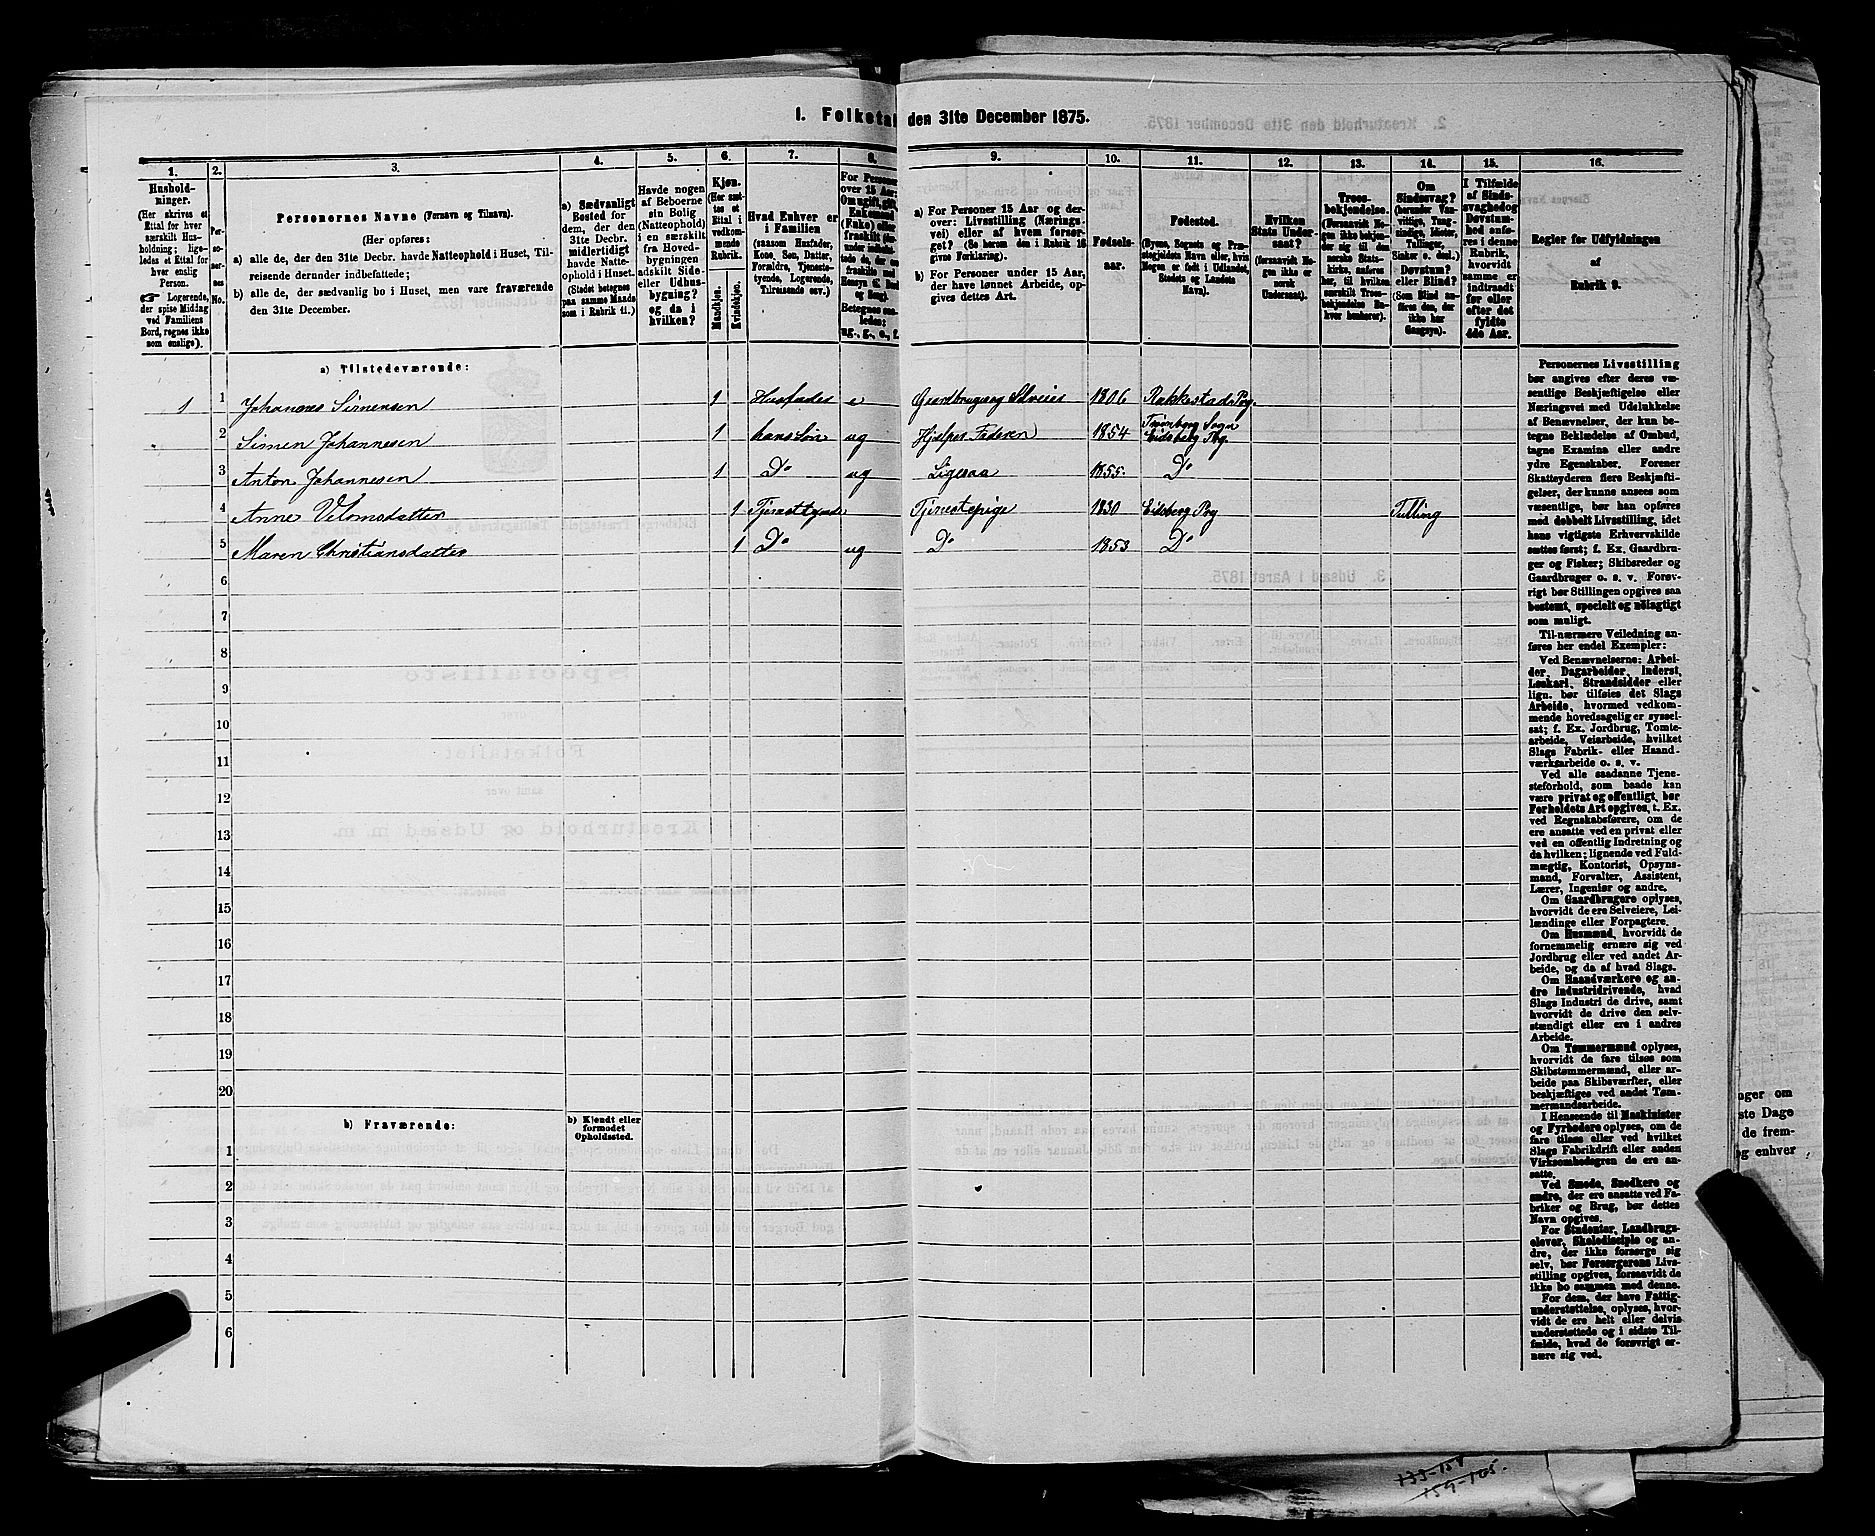 1. Folketal den 31te December 1875.
1. 2. 3. 4. 5. 6. 7. 8. 9. 10. 11. 12. 13. 14. 15. 16.
Hushold-
ninger.
(Her skrives et
Ettal for hver
særskilt Hus-
holdning; lige-
ledes et Ettal for
hver enslig
Person.
☞ Logerende,
der spise Middag
ved Familiens
Bord, regnes ikke
som enslige).
Per-
soner-
nes
No.
Personernes Navne (Fornavn og Tilnavn).
(Her opføres:
a) alle de, der den 31te Decbr. havde Natteophold i Huset, Til-
reisende derunder indbefattede;
b) alle de, der sædvanlig bo i Huset, men vare fraværende
den 31te December.
a) Sædvanligt
Bosted for
dem, der den
31te Decbr.
midlertidigt
havde Natte-
ophold i Huset.
(Stedet betegnes
paa samme Maade
som i Rubrik 11.)
Havde nogen
af Beboerne
sin Bolig
(Natteophold)
i en særskilt
fra Hoved-
bygningen
adskilt Side-
eller Udhus-
bygning?
og da i
hvilken?
Kjøn.
(Her sæt-
tes et
Ettal i
vedkom-
mende
Rubrik.
Mandkjøn.
Kvindekjøn.
Hvad Enhver er
i Familien
(saasom Husfader,
Kone, Søn, Datter,
Forældre, Tjeneste-
tyende, Logerende,
Tilreisende osv.)
For Personer
over 15 Aar
Om ugift, gift,
Enkemand
(Enke) eller
fraskilt
Betegnes saa-
ledes:
ug., g., e., f.
a) For Personer 15 Aar og der-
over: Livsstilling (Nærings-
vei) eller af hvem forsør-
get? (Se herom den i Rubrik 16
givne Forklaring).
b) For Personer under 15 Aar,
der have lønnet Arbeide, op-
gives dettes Art.
Fødsels-
aar.
Fødested.
(Byens, Sognets og Præ-
stegjeldets Navn eller, hvis
Nogen er født i Udlandet,
Stedets og Landets
Navn).
Hvilken
Stats Under-
saat?
(forsaavidt No-
gen ikke er
norsk
Undersaat).
Troes-
bekjendelse.
(Forsaavidt No-
gen ikke bekjen-
der sig til den
norske Stats-
kirke, anføres
her, til hvilken
særskilt Troes-
bekjendelse En-
hver henhører).
Om
Sindssvag?
(herunder Van-
vittige, Tung-
sindige, Idioter,
Tullinger,
Sinker o. desl.)
Døvstum?
eller Blind?
(Som Blind an-
føres den, der
ikke har
Gangsyn).
I Tilfælde
af Sinds-
svaghed og
Døvstum-
hed anfø-
res i denne
Rubrik,
hvorvidt
samme er
indtraadt
før eller
efter det
fyldte
4de Aar.
Regler for Udfyldningen
af
Rubrik 9.
a) Tilstedeværende:
1 1 Johannes Simensen 1 Husfader e Gaardbruger og Selveier 1806 Rakkestad Prg.
2 Simen Johannesen 1 hans Søn ug Hjælper Faderen 1854 Trømborg Sogn Eidsberg Prg.
3 Anton Johannesen 1 Do ug Ligesaa 1855 Do
4 Anne 1 Tjenestetyende Tjenestepige 1830 Eidsberg Prg Tulling
5 Maren Christiansdatter 1 Do ug Do 1853 Do
6
7
8
9
10
11
12
13
14
15
16
17
18
19
20
b) Fraværende:
b) Kjendt eller
formodet
Opholdssted.
1
2
3
4
5
6
Personernes Livsstilling
bør angives efter deres væ-
sentlige Beskjæftigelse eller
Næringsvei med Udelukkelse
af Benævnelser, der kun be-
tegne Beklædelse af Ombud,
tagne Examina eller andre
ydre Egenskaber. Forener
Skatteyderen flere Beskjæfti-
gelser, der kunne ansees som
væsentlige, bør han opføres
med dobbelt Livsstilling, idet
hans vigtigste Erhvervskilde
sættes først; f. Ex. Gaardbru-
ger og Fisker; Skibsreder og
Gaardbruger o. s. v. Forøv-
rigt bør Stillingen opgives saa
bestemt, specielt og nøiagtigt
som muligt.
Til nærmere Veiledning an-
føres her endel Exempler:
Ved Benævnelserne: Arbei-
der, Dagarbeider, Inderst,
Løskarl, Strandsidder eller
lign. bør tilføies det Slags
Arbeide, hvormed vedkom-
mende hovedsagelig er syssel-
sat; f. Ex. Jordbrug, Tomte-
arbeide, Veiarbeide, hvilket
Slags Fabrik- eller Haand-
værksarbeide o. s. v.
Ved alle saadanne Tjene-
steforhold, som baade kan
være privat og offentligt, bør
Forholdets Art opgives, t. Ex.
ved Regnskabsførere, om de
ere ansatte ved en privat eller
ved en offentlig Indretning og
da hvilken; lignende ved Fuld-
mægtig, Kontorist, Opsyns-
mand, Forvalter, Assistent,
Lærer, Ingeniør og andre.
Om Gaardbrugere oplyses,
hvorvidt de ere Selveiere, Lei-
lændinge eller Forpagtere.
Om Husmænd, hvorvidt de
fornemmelig ernære sig ved
Jordbrug eller ved andet Ar-
beide, og da af hvad Slags.
Om Haandværkere og an-
dre Industridrivende, hvad
Slags Industri de drive, samt
hvorvidt de drive den selv-
stændigt eller ere i andres
Arbeide.
Om Tømmermænd oplyses,
hvorvidt de fare tilsøs som
Skibstømmermænd, eller ar-
beide paa Skibsværfter, eller
beskjæftiges ved andet Tøm-
mermandsarbeide.
I Henseende til Maskinister
og Fyrbødere oplyses, om de
fare tilsøs eller ved hvilket
Slags Fabrikdrift eller anden
Virksomhedsgren de ere an-
satte.
Ved Smede, Snedkere og
andre, der ere ansatte ved Fa-
briker og Brug, bør dettes
Navn opgives.
For Studenter, Landbrugs-
elever, Skoledisciple og an-
dre, der ikke forsørge sig
selv, bør Forsørgerens Livs-
stilling opgives, forsaavidt de
ikke bo sammen med denne.
For dem, der have Fattig-
understøttelse, oplyses, hvor-
vidt de ere helt eller delvis
understøttede og i sidste Til-
fælde, hvad de forøvrigt er-
nære sig ved.
nger om
ste Dage
de frem-
og enhver
133-158
159-165.